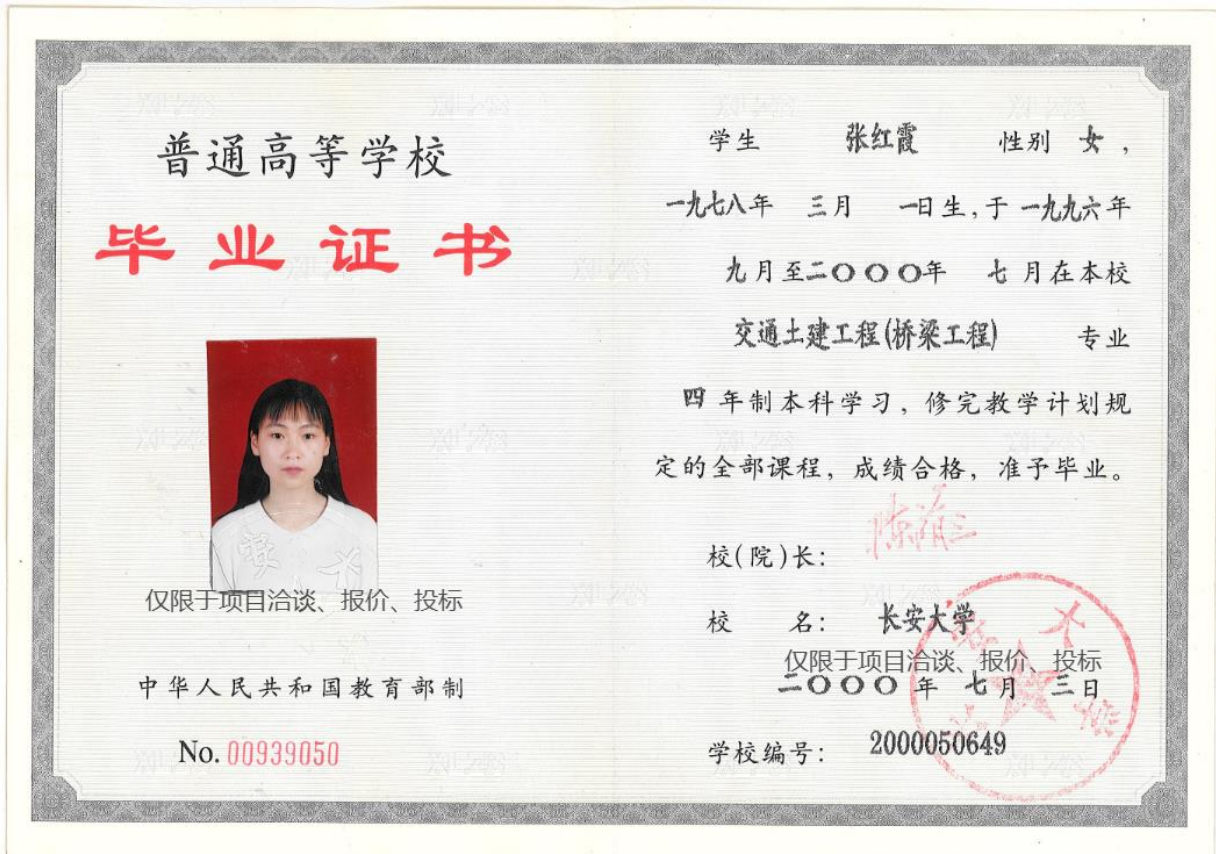 普通高等学校
毕业证书
仅限于项目洽谈、报价、投标
中华人民共和国教育部制
No. 00939050
学生 张红霞 性别 女，
一九七八年 三月 一日生，于一九九六年
九月至二〇〇〇年 七月在本校
交通土建工程(桥梁工程) 专业
四年制本科学习，修完教学计划规
定的全部课程，成绩合格，准予毕业。
校(院)长：
校 名： 长安大学
仅限于项目洽谈、报价、投标
二〇〇〇年 七月 三日
学校编号： 2000050649